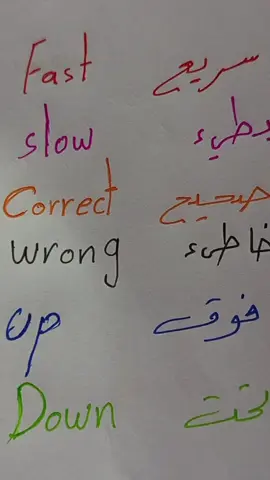 Fast سريع
slow بطيء
Correct صحيح
wrong خاطىء
up فوق
Down تحت